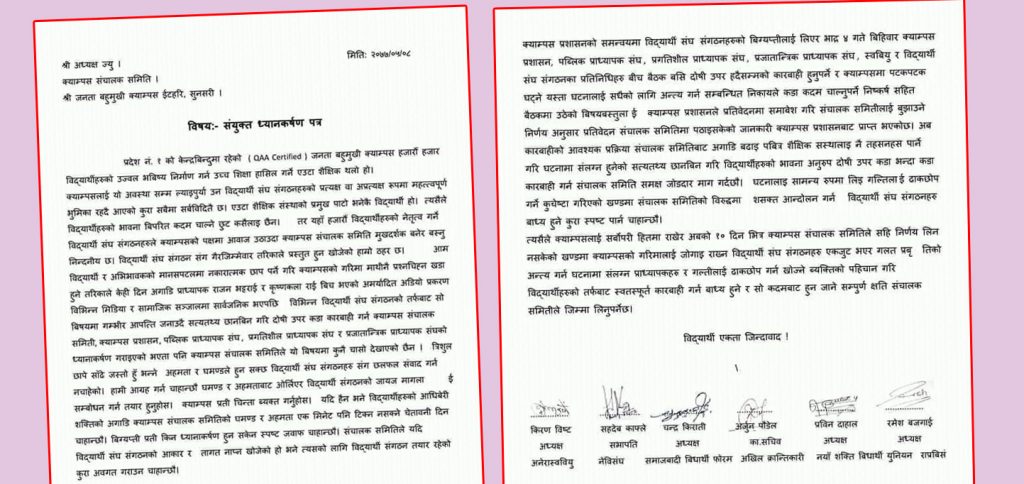 मिति: २०७७/०५/०८
श्री अध्यक्ष ज्यु ।
क्याम्पस संचालक समिति ।
श्री जनता बहुमुखी क्याम्पस ईटहरि, सुनसरी ।
विषय:- संयुक्त ध्यानकर्षण पत्र
प्रदेश नं. १ को केन्द्रबिन्दुमा रहेको ( QAA Certified ) जनता बहुमुखी क्याम्पस हजारौं हजार
विद्यार्थीहरुको उज्वल भबिष्य निर्माण गर्न उच्च शिक्षा हासिल गर्ने एउटा शैक्षिक थलो हो।
क्याम्पसलाई यो अवस्था सम्म ल्याइपुर्या उन विद्यार्थी संघ संगठनहरुको प्रत्यक्ष वा अप्रत्यक्ष रूपमा महत्त्वपूर्ण
भुमिका रहदै आएको कुरा सबैमा सर्बविदितै छ। एउटा शैक्षिक संस्थाको प्रमुख पाटो भनेकै विद्यार्थी हो। त्यसैले
विद्यार्थीहरुको भावना बिपरित कदम चाल्ने छुट कसैलाइ छैन। तर यहाँ हजारौं विद्यार्थीहरुको नेतृत्व गर्ने
विद्यार्थी संघ संगठनहरुले क्याम्पसको पक्षमा आवाज उठाउदा क्याम्पस संचालक समिति मुखदर्शक बनेर बस्नु
निन्दनीय छ। विद्यार्थी संघ संगठन संग गैरजिम्मेवार तरिकाले प्रस्तुत हुन खोजेको हाम्रो ठहर छ। आम
विद्यार्थी र अभिभावकको मानसपटलमा नकारात्मक छाप पर्ने गरि क्याम्पसको गरिमा माथीनै प्रश्नचिह्न खडा
हुने तरिकाले केही दिन अगाडि प्राध्यापक राजन भट्टराई र कृष्णकला राई बिच भएको अमर्यादित अडियो प्रकरण
विभिन्न मिडिया र सामाजिक सञ्जालमा सार्वजनिक भएपछि विभिन्न विद्यार्थी संघ संगठनहरुको तर्फबाट सो
बिषयमा गम्भीर आपत्ति जनाउदै सत्यतथ्य छानबिन गरि दोषी उपर कडा कारबाही गर्न क्याम्पस संचालक
समिती, क्याम्पस प्रशासन, पब्लिक प्राध्यापक संघ, प्रगतिशील प्राध्यापक संघ र प्रजातान्त्रिक प्राध्यापक संघको
ध्यानाकर्षण गराइएको भएता पनि क्याम्पस संचालक समितिले यो बिषयमा कुनै चासो देखाएको छैन । त्रिशुल
छापे साँढे जस्तो हुँ भन्ने अहमता र घमण्डले हुन सक्छ विद्यार्थी संघ संगठनहरु संग छलफल संवाद गर्न
नचाहेको। हामी आग्रह गर्न चाहान्छौ घमण्ड र अहमताबाट ओर्लिएर विद्यार्थी संगठनको जायज मागला ई
सम्बोधन गर्न तयार हुनुहोस। क्याम्पस प्रती चिन्ता ब्यक्त गर्नुहोस। यदि हैन भने विद्यार्थीहरुको आधिबेरी
शक्तिको अगाडि क्याम्पस संचालक समितिको घमण्ड र अहमता एक मिनेट पनि टिक्न नसक्ने चेतावनी दिन
चाहान्छौं। बिग्यप्ती प्रती किन ध्यानाकर्षण हुन सकेन स्पष्ट जवाफ चाहान्छौं। संचालक समितिले यदि
विद्यार्थी संघ संगठनको आकार र तागत नाप्न खोजेको हो भने त्यसको लागि विद्यार्थी संगठन तयार रहेको
कुरा अवगत गराउन चाहान्छौ।
क्याम्पस प्रशासनको समन्वयमा विद्यार्थी संघ संगठनहरुको बिग्यप्तीलाई लिएर भाद्र ४ गते बिहिवार क्याम्पस
प्रशासन, पब्लिक प्राध्यापक संघ, प्रगतिशील प्राध्यापक संघ, प्रजातान्त्रिक प्राध्यापक संघ, स्वबियु र विद्यार्थी
संघ संगठनका प्रतिनिधिहरु बीच बैठक बसि दोषी उपर हदैसम्मको कारबाही हुनुपर्ने र क्याम्पसमा पटकपटक
घट्ने यस्ता घटनालाई सधैको लागि अन्त्य गर्न सम्बन्धित निकायले कडा कदम चाल्नुपर्ने निष्कर्ष सहित
बैठकमा उठेको बिषयबस्तुला ई क्याम्पस प्रशासनले प्रतिवेदनमा समाबेश गरि संचालक समितीलाई बुझाउने
निर्णय अनुसार प्रतिवेदन संचालक समितिमा पठाइसकेको जानकारी क्याम्पस प्रशासनबाट प्राप्त भएकोछ। अब
कारबाहीको आवश्यक प्रक्रिया संचालक समितिबाट अगाडि बढाइ पबित्र शैक्षिक संस्थालाइ नै तहसनहस पार्ने
गरि घटनामा संलग्न हुनेको सत्यतथ्य छानबिन गरि विद्यार्थीहरुको भावना अनुरुप दोषी उपर कडा भन्दा कडा
कारबाही गर्न संचालक समिति समक्ष जोडदार माग गर्दछौ। घटनालाइ सामान्य रुपमा लिइ गल्तिलाई ढाकछोप
गर्ने कुचेष्टा गरिएको खण्डमा संचालक समितिको विरुद्धमा शसक्त आन्दोलन गर्न विद्यार्थी संघ संगठनहरु
बाध्य हुने कुरा स्पष्ट पार्न चाहान्छौं।
त्यसैले क्याम्पसलाई सर्बोपरी हितमा राखेर अबको १० दिन भित्र क्याम्पस संचालक समितिले सहि निर्णय लिन
नसकेको खण्डमा क्याम्पसको गरिमालाई जोगाइ राख्न विद्यार्थी संघ संगठनहरु एकजुट भएर गलत प्रबृ तिको
अन्त्य गर्न घटनामा संलग्न प्राध्यापकहरु र गल्तीलाई ढाकछोप गर्न खोज्ने ब्यक्तिको पहिचान गरि
विद्यार्थीहरुको तर्फबाट स्वतस्फूर्त कारबाही गर्न बाध्य हुने र सो कदमबाट हुन जाने सम्पुर्ण क्षति संचालक
समितीले जिम्मा लिनुपर्नेछ।
विद्यार्थी एकता जिन्दावाद !
किरण विष्ट सहदेब काफ्ले चन्द्र किराती अर्जुन पौडेल प्रविन दाहाल रमेश बजगाई
अध्यक्ष सभापति अध्यक्ष का.सचिव अध्यक्ष अध्यक्ष
अनेरास्ववियु नेविसंघ समाजबादी बिधार्थी फोरम अखिल क्रान्तिकारी नयाँ शक्ति बिधार्थी युनियन राप्रबिसं